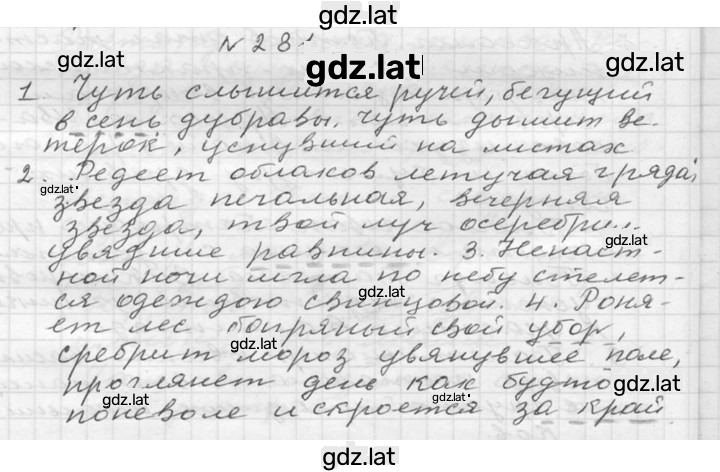 gdz.lat
№ 281
gdz.lat
gdz.lat
gdz.lat
1 Чуть слышится ручей, бегущий
в сень дубравы. Чуть дышит ве-
терок, уснувший на листах
2. Редеет облаков летучая гряда;
gdz.lat
звезда печальная, вечерняя
звезда, твой луч осеребрил
gdz.lat
увядшие равнины. 3. Ненаст-
ной ночи мгла по небу стелет-
gdz.lat
ся одеждою свинцовой. 4. Роня-
ет лес багряный свой убор,
gdz.lat
сребрит мороз увянувшее поле,
проглянет день как будто
gdz.lat
поневоле и скроется за край
gdz.lat
gdz.lat
gdz.lat
gdz.lat